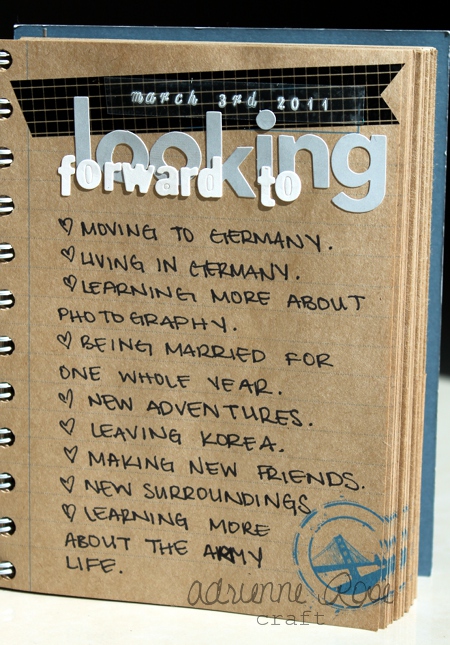 march 3rd 2011
looking
forward to
♡ MOVING TO GERMANY.
♡ LIVING IN GERMANY.
♡ LEARNING MORE ABOUT
PHOTOGRAPHY.
♡ BEING MARRIED FOR
ONE WHOLE YEAR.
♡ NEW ADVENTURES.
♡ LEAVING KOREA.
♡ MAKING NEW FRIENDS.
♡ NEW SURROUNDINGS
♡ LEARNING MORE
ABOUT THE ARMY
LIFE.
adrienne Rose
craft